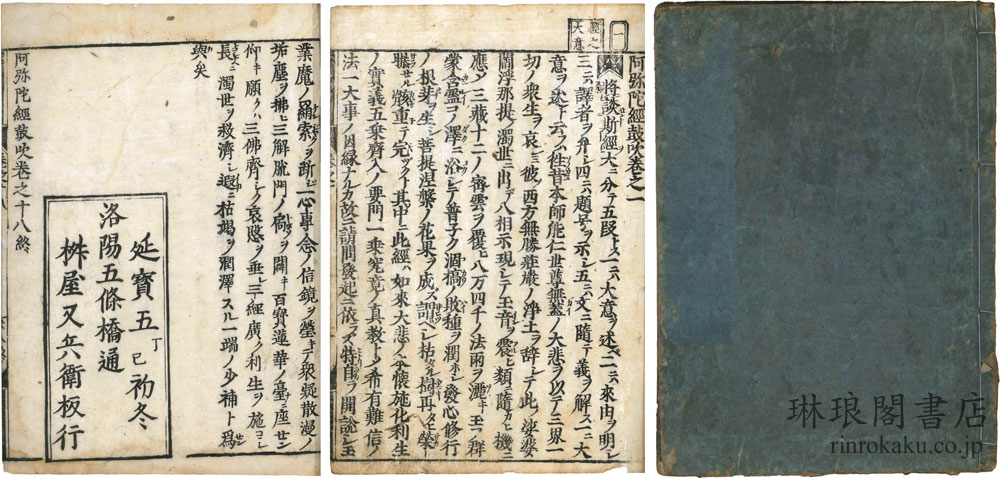 一
經之
大意
阿弥陀經鼓吹卷之一
將談斯經大ニ分テ五段トス一ニハ大意ヲ述二ニハ來由ヲ明シ
三ニハ譯者ヲ弁シ四ニハ題号ヲ示シ五ニハ文ニ隨テ義ヲ解ス一ニ大
意ヲ述ト云ハ徃昔本師能仁世尊無蓋ノ大悲ヲ以テ三界一
切ノ衆生ヲ哀ミ彼ノ西方無勝莊嚴ノ浄土ヲ辞シテ此ノ娑婆
閻浮那提ノ濁世ニ出テ八相示現シテ玉音ヲ震ヒ類ニ隨カヒ機ニ
應メ三藏十二ノ密雲ヲ覆ヒ八万四千ノ法雨ヲ灑キ玉フ群
蒙含靈コノ澤ニ浴シテ普子ク涸槁ノ敗種ヲ潤ホシ發心修行
ノ根芽ヲ生シ菩提涅槃ノ花果ヲ成ス謂ベシ枯タル樹再タヒ榮
聯セル骸重テ完ツタシ其中ニ此經ハ如來大悲ノ本懷施化利生
ノ實義五乗齊入ノ要門一乗究竟ノ真教ナリ希有難信ノ
法一大事ノ因縁ナルカ故ニ請問發起ニ依ラス特自ラ開說シ玉
業魔ノ羂索ヲ断シ一心專念ノ信鏡ヲ瑩キテ衆疑散漫ノ
垢塵ヲ拂ヒ三解脱門ノ扃ヲ闢キ百寶蓮華ノ臺ニ座セン
仰キ願クハ三佛齊シク哀愍ヲ垂レ三經廣ク利生ヲ施コシ
長ニ濁世ヲ救濟シ遐ニ枯竭ヲ潤澤スル一端ノ少補トモ爲
與矣
阿弥陀經鼓吹卷之十八終
延寶五丁巳初冬
洛陽五條橋通
桝屋又兵衛板行
琳琅閣書店
rinrokaku.co.jp